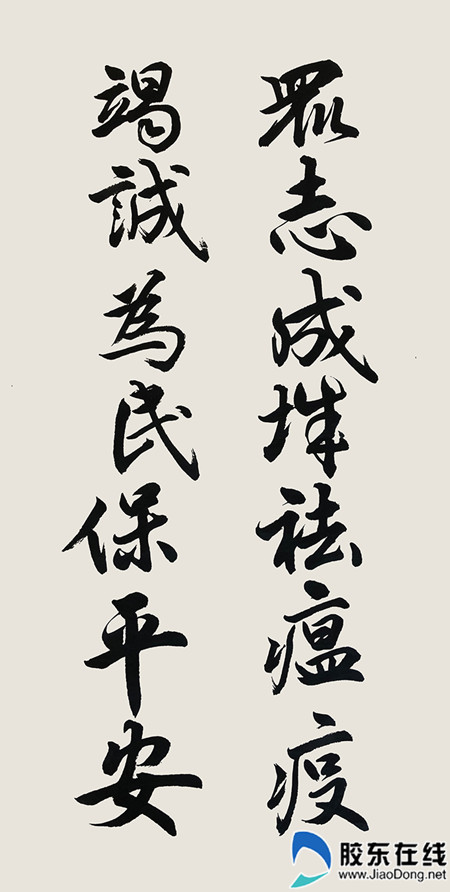 眾志成城祛瘟疫
竭誠為民保平安
胶东在线
www.JiaoDong.net